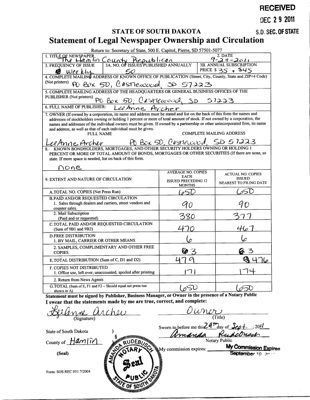 RECEIVED
DEC 29 2011
S.D. SEC. OF STATE
STATE OF SOUTH DAKOTA
Statement of Legal Newspaper Ownership and Circulation
Return to: Secretary of State, 500 E. Capitol, Pierre, SD 57501-5077
1. TITLE OF NEWSPAPER
2. DATE
The Hamlin County Republican
9-23-2011
3. FREQUENCY OF ISSUE
3A. NO. OF ISSUES PUBLISHED ANNUALLY
3B. ANNUAL SUBSCRIPTION
weekly
50
PRICE $ 35 + $45
4. COMPLETE MAILING ADDRESS OF KNOWN OFFICE OF PUBLICATION (Street, City, County, State and ZIP+4 Code)
(Not printers)
PO Box 50, Castlewood SD 57223
5. COMPLETE MAILING ADDRESS OF THE HEADQUARTERS OF GENERAL BUSINESS OFFICES OF THE
PUBLISHER (Not printers)
PO Box 50, Castlewood, SD 57223
6. FULL NAME OF PUBLISHER:
LeeAnne Archer
7. OWNER (If owned by a corporation, its name and address must be stated and list on the back of this form the names and
addresses of stockholders owning or holding 1 percent or more of total amount of stock. If not owned by a corporation, the
names and addresses of the individual owners must be given. If owned by a partnership or other unincorporated firm, its name
and address, as well as that of each individual must be given.
FULL NAME
COMPLETE MAILING ADDRESS
LeeAnne Archer
PO Box 50, Castlewood SD 57223
8. KNOWN BONDHOLDERS, MORTGAGEES, AND OTHER SECURITY HOLDERS OWNING OR HOLDING 1
PERCENT OR MORE OF TOTAL AMOUNT OF BONDS, MORTGAGES OR OTHER SECURITIES (If there are none, so
state. If more space is needed, list on back of this form.
none
9. EXTENT AND NATURE OF CIRCULATION
AVERAGE NO. COPIES
EACH
ISSUED PRECEDING 12
MONTHS
ACTUAL NO. COPIES
ISSUED
NEAREST TO FILING DATE
A. TOTAL NO. COPIES (Net Press Run)
650
650
B. PAID AND/OR REQUESTED CIRCULATION
1. Sales through dealers and carriers, street vendors and
counter sales.
90
90
2. Mail Subscription
(Paid and or requested)
380
377
C. TOTAL PAID AND/OR REQUESTED CIRCULATION
(Sum of 9B1 and 9B2)
470
467
D. FREE DISTRIBUTION
1. BY MAIL, CARRIER OR OTHER MEANS
6
6
2. SAMPLES, COMPLIMENTARY AND OTHER FREE
COPIES
3
3
E. TOTAL DISTRIBUTION (Sum of C, D1 and D2)
479
476
F. COPIES NOT DISTRIBUTED
1. Office use, left over, unaccounted, spoiled after printing
171
174
2. Return from News Agents
G. TOTAL (Sum of E, F1 and F2 - Should equal net press run
shown in A)
650
650
Statement must be signed by Publisher, Business Manager, or Owner in the presence of a Notary Public
I swear that the statements made by me are true, correct, and complete:
Owner
(Signature)
(Title)
State of South Dakota
Sworn to before me this 28th day of Sept., 2011
Amanda Rudebusch
County of Hamlin
Notary Public
(Seal)
My commission expires:
My Commission Expires
September
AMANDA RUDEBUSCH
NOTARY
PUBLIC
SEAL
STATE OF SOUTH DAKOTA
Form: SOS REC 051 7/2004